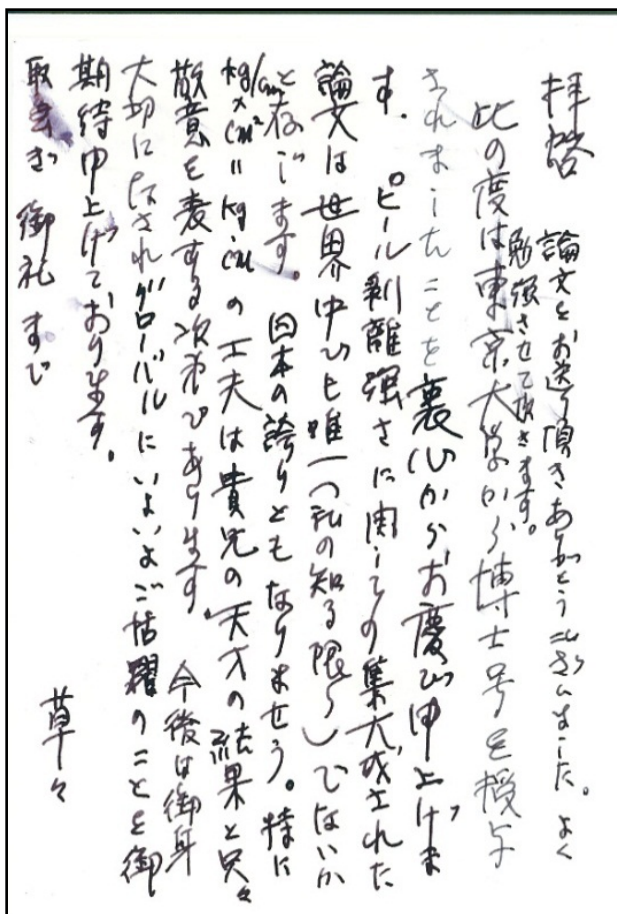 拝啓
論文をお送り頂きありがとうございました。よく
勉強させて頂きます。
此の度は東京大学から博士号を授与
されましたことを裏心からお慶び申上げま
す。ピール剥離強さに関しての集大成された
論文は世界中でも唯一(私の知る限り)でないか
と存じます。日本の誇りともなりませう。特に
kg/cm×cm²=kg·cmの工夫は貴兄の天才の結果と只々
敬意を表する次第であります。今後は御身
大切になされグローバルにいよいよご活躍のことを御
期待申上げております。
取急ぎ御礼まで
草々